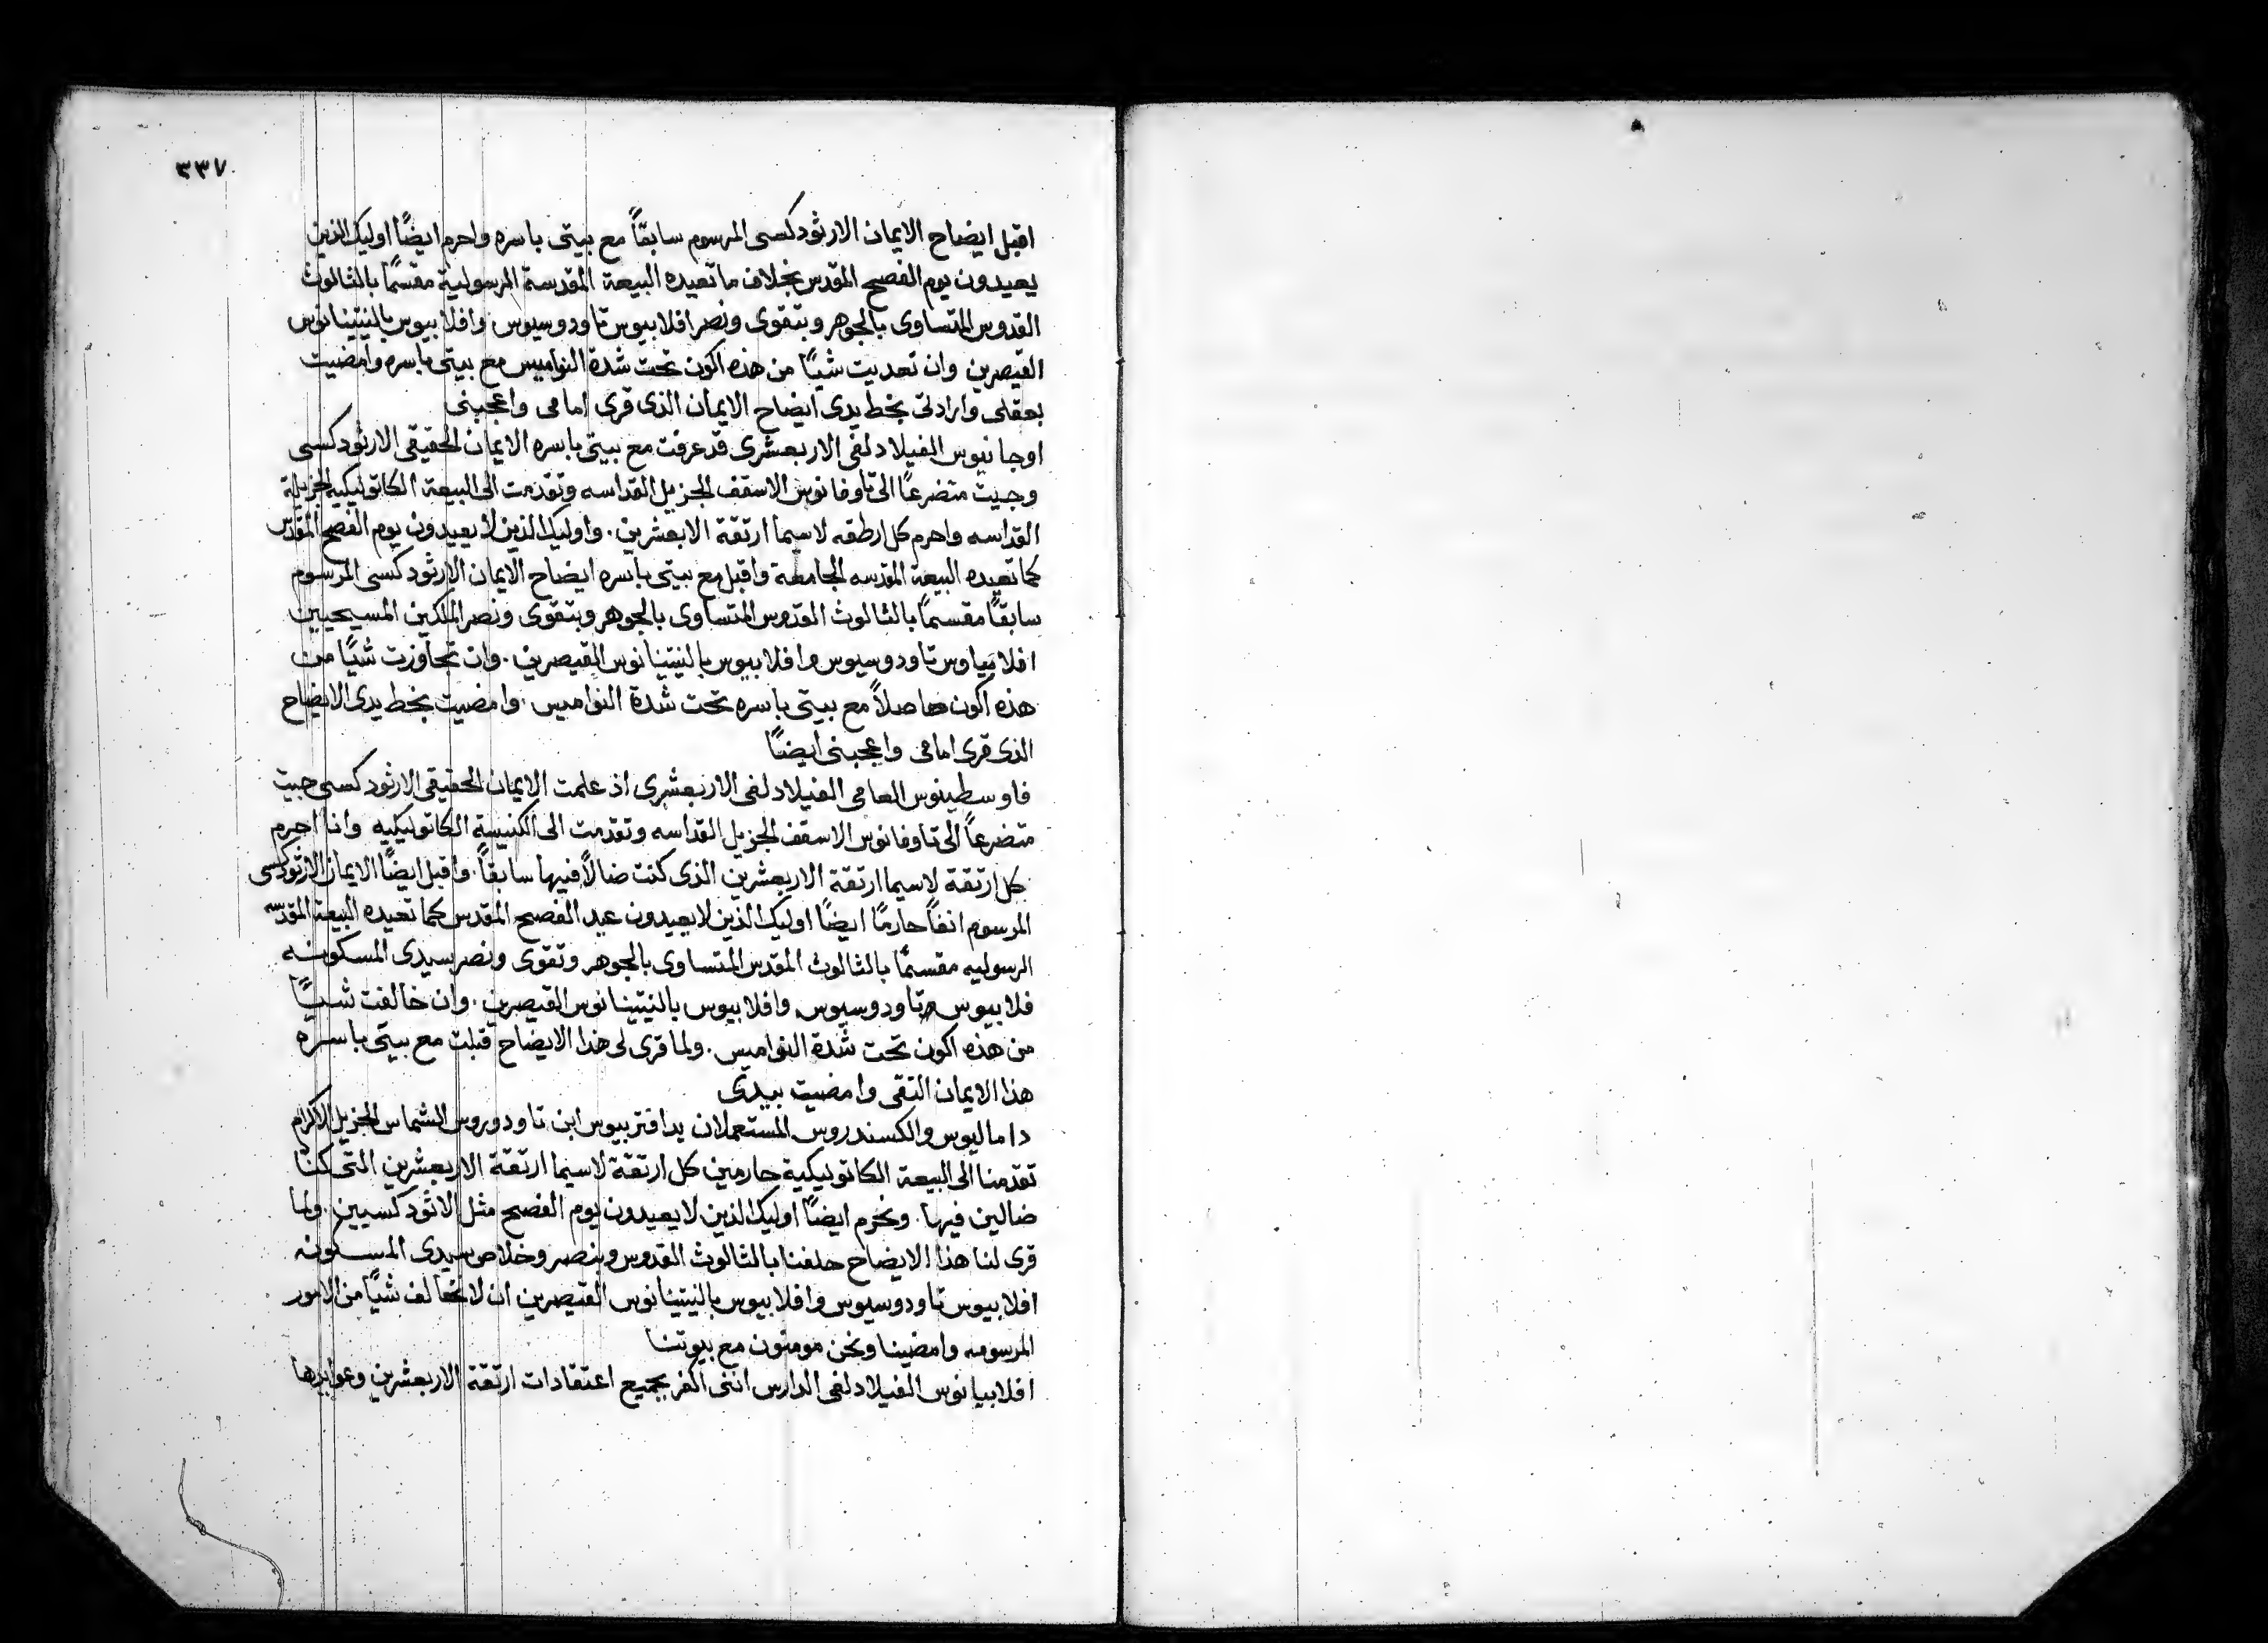 ٣٣٧
اقبل ايضاح الايمان الارثودكسى المرسوم سابقًا مع بيتى باسره واحرم ايضًا اوليك الذين
يعيدون يوم الفصح المقدس بخلاف ما تعيده البيعة المقدسة الرسولية مقسمًا بالثالوث
القدوس المتساوى بالجوهر وبتقوى ونصر افلابيوس تاودوسيوس وافلابيوس بالنتينانوس
القيصرين وان تعديت شيًا من هذه اكون تحت شدة النواميس مع بيتى باسره وامضيت
بعقلى وارادتى بخط يدى ايضاح الايمان الذى قرى امامى واعجبنى
اوجانيوس الفيلادلفى الاربعشرى قد عرفت مع بيتى باسره الايمان الحقيقى الارثودكسى
وجيت متضرعًا الى تاوفانوس الاسقف الجزيل القداسه وتقدمت الى البيعة الكاتوليكيه الجزيلة
القداسه واحرم كل ارطقه لاسيما ارتقة الابعشرين. واوليك الذين لا يعيدون يوم الفصح المقدس
كما تعيده البيعة المقدسه الجامعة واقبل مع بيتى باسره ايضاح الايمان الارثودكسى المرسوم
سابقًا مقسمًا بالثالوث القدوس المتساوى بالجوهر وبتقوى ونصر الملكين المسيحيين
افلابياوس تاودوسيوس وافلابيوس بالنتينانوس القيصرين. وان تجاوزت شيًا من
هذه اكون حاصلاً مع بيتى باسره تحت شدة النواميس. وامضيت بخط يدى الايضاح
الذى قرى امامى واعجبنى ايضًا
فاوسطينوس العامى الفيلادلفى الاربعشرى اذ علمت الايمان الحقيقى الارثودكسى جيت
متضرعًا الى تاوفانوس الاسقف الجزيل القداسه وتقدمت الى الكنيسة الكاتوليكيه وانا احرم
كل ارتقة لاسيما ارتقة الاربعشرين الذى كنت ضالاً فيها سابقًا. واقبل ايضًا الايمان الارثودكسى
المرسوم انفًا حارمًا ايضًا اوليك الذين لا يعيدون عيد الفصح المقدس كما تعيده البيعة المقدسه
الرسوليه مقسمًا بالثالوث المقدس المتساوى بالجوهر وتقوى ونصر سيدى المسكونه
فلابيوس تاودوسيوس وافلابيوس بالنيتينانوس القيصرين. وان خالفت شيًا
من هذه اكون تحت شدة النواميس. ولما قرى لى هذا الايضاح قبلت مع بيتى باسره
هذا الايمان التقى وامضيت بيدى
داماليوس والكسندروس المستعملان يد افتربيوس ابن تاودوروس الشماس الجزيل الاكرام
تقدمنا الى البيعة الكاتوليكية حارمين كل ارتقة لاسيما ارتقة الاربعشرين التى كنا
ضالين فيها. ونحرم ايضًا اوليك الذين لا يعيدون يوم الفصح مثل الاثودكسيين. ولما
قرى لنا هذا الايضاح حلفنا بالثالوث القدوس وبنصر وخلاص سيدى المسكونه
افلابيوس تاودوسيوس وافلابيوس بالنيتينانوس القيصرين ان لا نخالف شيًا من الامور
المرسومه وامضينا ونحن مومنون مع بيوتنا
افلابيانوس الفيلادلفى الدارس اننى اكفر بجميع اعتقادات ارتقة الاربعشرين وعوايدها